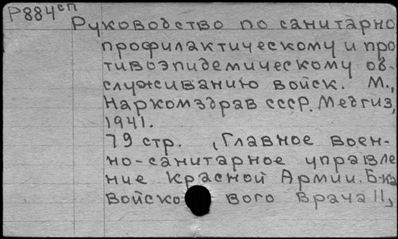 Р884сп
Руководство по санитарно
профилактическому и про
тивоэпидемическому об-
служиванию войск. М.,
Наркомздрав СССР. Медгиз,
1941.
79 стр. „Главное воен-
но-санитарное управле
ние Красной Армии. Б-ка
Войско вого врача",